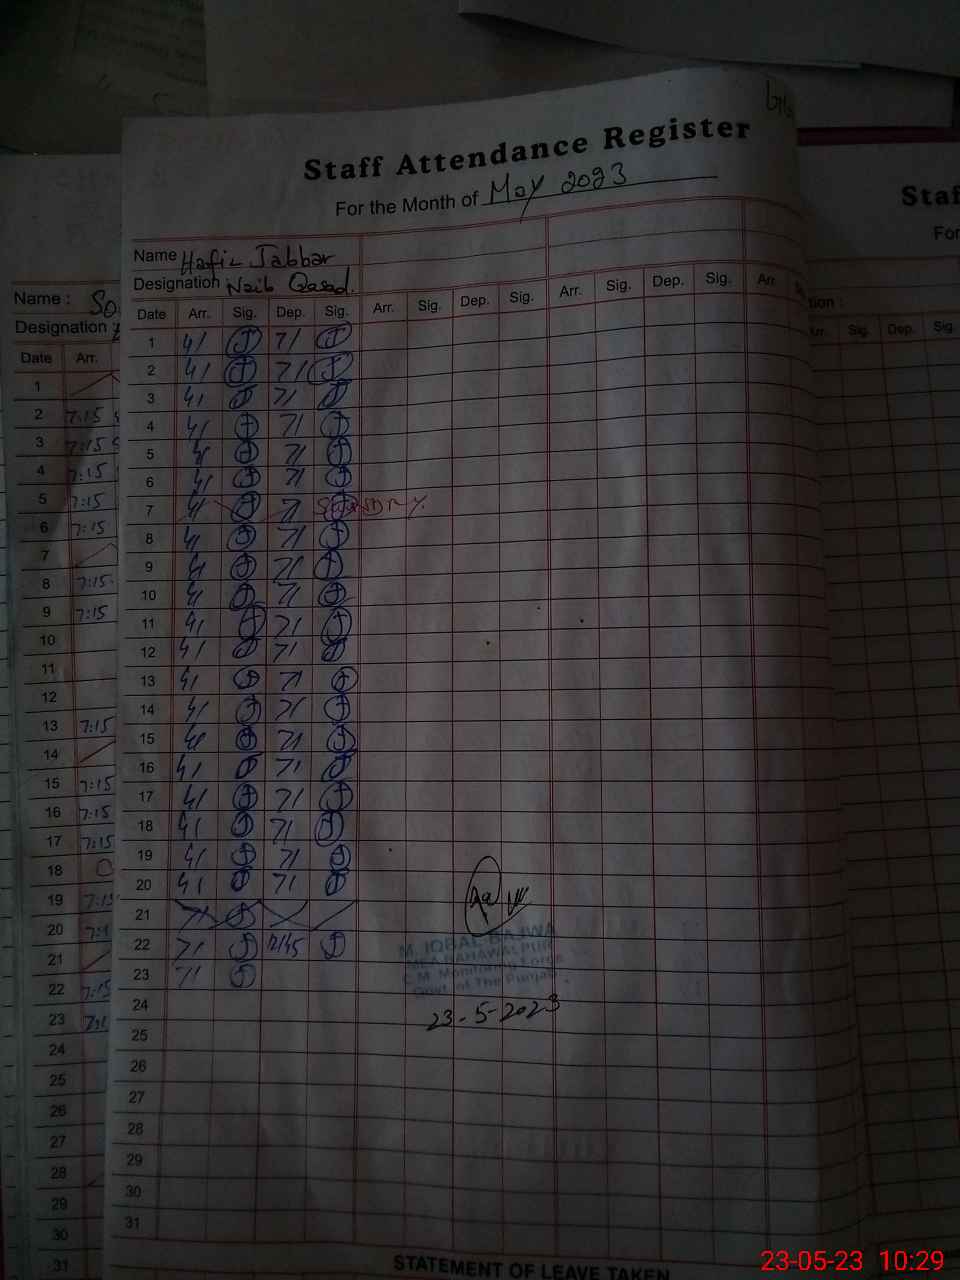 Staff Attendance Register
For the Month of May 2023
Name Hafiz Jabbar
Designation Naib Qasad.
Date Arr. Sig. Dep. Sig. Arr. Sig. Dep. Sig. Arr. Sig. Dep. Sig. Arr.
1 4/ 7/
2 4/ 7/
3 4/ 7/
4 4/ 7/
5 4/ 7/
6 4/ 7/
7 4/ 7/
8 4/ 7/
9 4/ 7/
10 4/ 7/
11 4/ 7/
12 4/ 7/
13 4/ 7/
14 4/ 7/
15 4/ 7/
16 4/ 7/
17 4/ 7/
18 4/ 7/
19 4/ 7/
20 4/ 7/
21 7/
22 7/ 12/45
23 7/
24
25
26
27
28
29
30
31
M. IQBAL BAJWA
MEA BAHAWALPUR
C.M. Monitoring Force
Govt. of The Punjab
23-5-2023
STATEMENT OF LEAVE TAKEN
Name : So
Designation
Date Arr.
1
2 7:15
3 7:15
4 7:15
5 7:15
6 7:15
7
8 7:15
9 7:15
10
11
12
13 7:15
14
15 7:15
16 7:15
17 7:15
18
19 7:15
20
21
22 7:15
23
24
25
26
27
28
29
30
31
Staf
For
tion :
Arr. Sig. Dep. Sig.
23-05-23 10:29